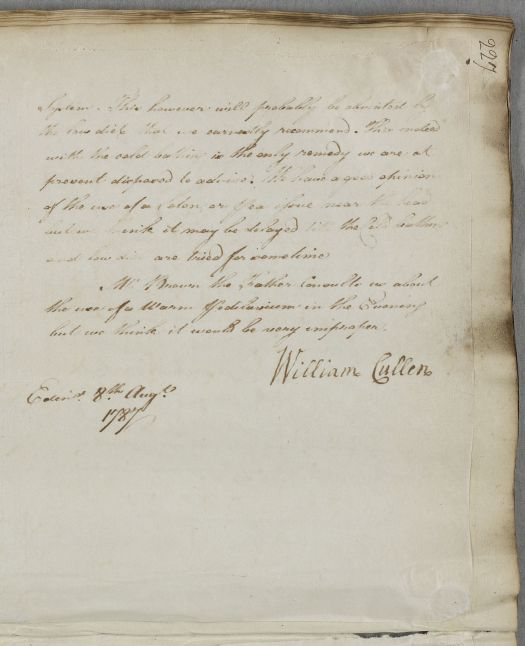 227
System. This however will probably be obviated by
the low diet that we earnestly recommend. This united
with the cold bathing is the only remedy we are at
present disposed to advise. We have a good opinion
of the use of a Seton, or Pea Issue near the head
but we think it may be delayed till the Cold Bathing
and low diet are tried for sometime
Mr. Brown the Father Consults us about
the use of a Warm Pediluvium in the Evening
but we think it would be very improper.
William Cullen
Edinr. 8th Augt.
1787